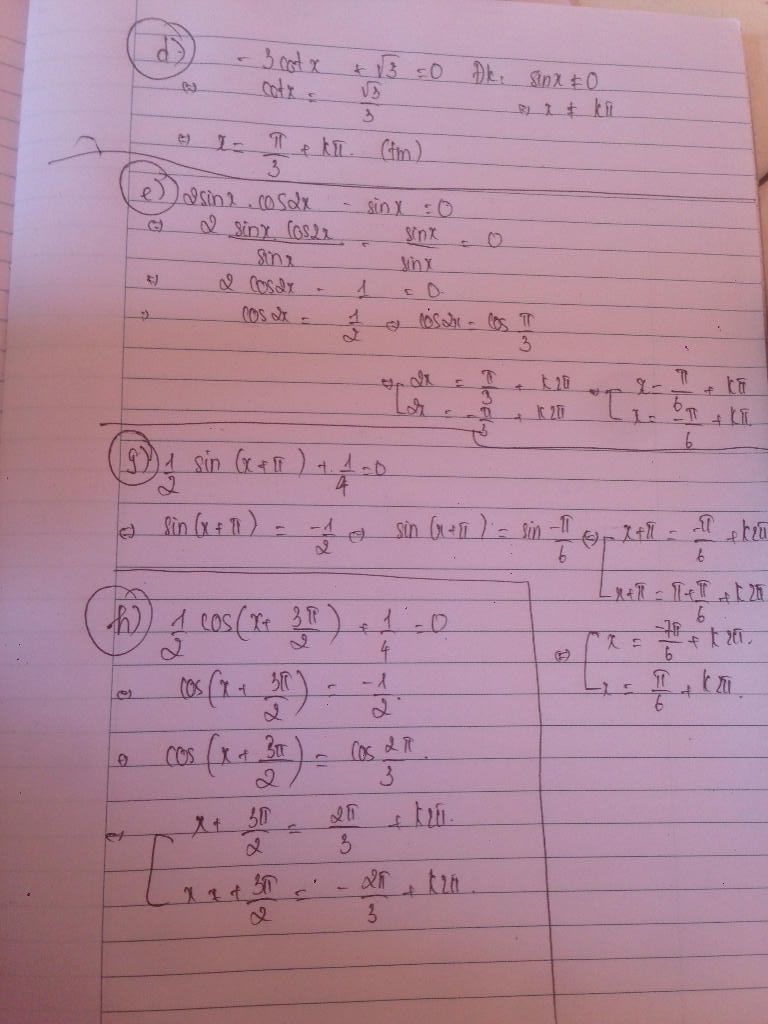 d) - 3cotx + √3 = 0 Đk: sinx ≠ 0
⇔ cotx = √3/3 ⇔ x ≠ kπ
⇔ x = π/3 + kπ. (tm)
e) 2sinx.cos2x - sinx = 0
⇔ 2 sinx cos2x/sinx - sinx/sinx = 0
⇔ 2 cos2x - 1 = 0
⇔ cos2x = 1/2 ⇔ cos2x = cos π/3
⇔ [ 2x = π/3 + k2π ⇔ [ x = π/6 + kπ
2x = -π/3 + k2π x = -π/6 + kπ.
g) 1/2 sin (x+π) + 1/4 = 0
⇔ sin(x+π) = -1/2 ⇔ sin (x+π) = sin -π/6 ⇔ [ x+π = -π/6 + k2π
x+π = π+π/6 + k2π
⇔ [ x = -7π/6 + k2π.
x = π/6 + k2π.
h) 1/2 cos(x + 3π/2) + 1/4 = 0
⇔ cos(x + 3π/2) = -1/2.
⇔ cos (x + 3π/2) = cos 2π/3.
⇔ [ x + 3π/2 = 2π/3 + k2π.
x x + 3π/2 = - 2π/3 + k2π.